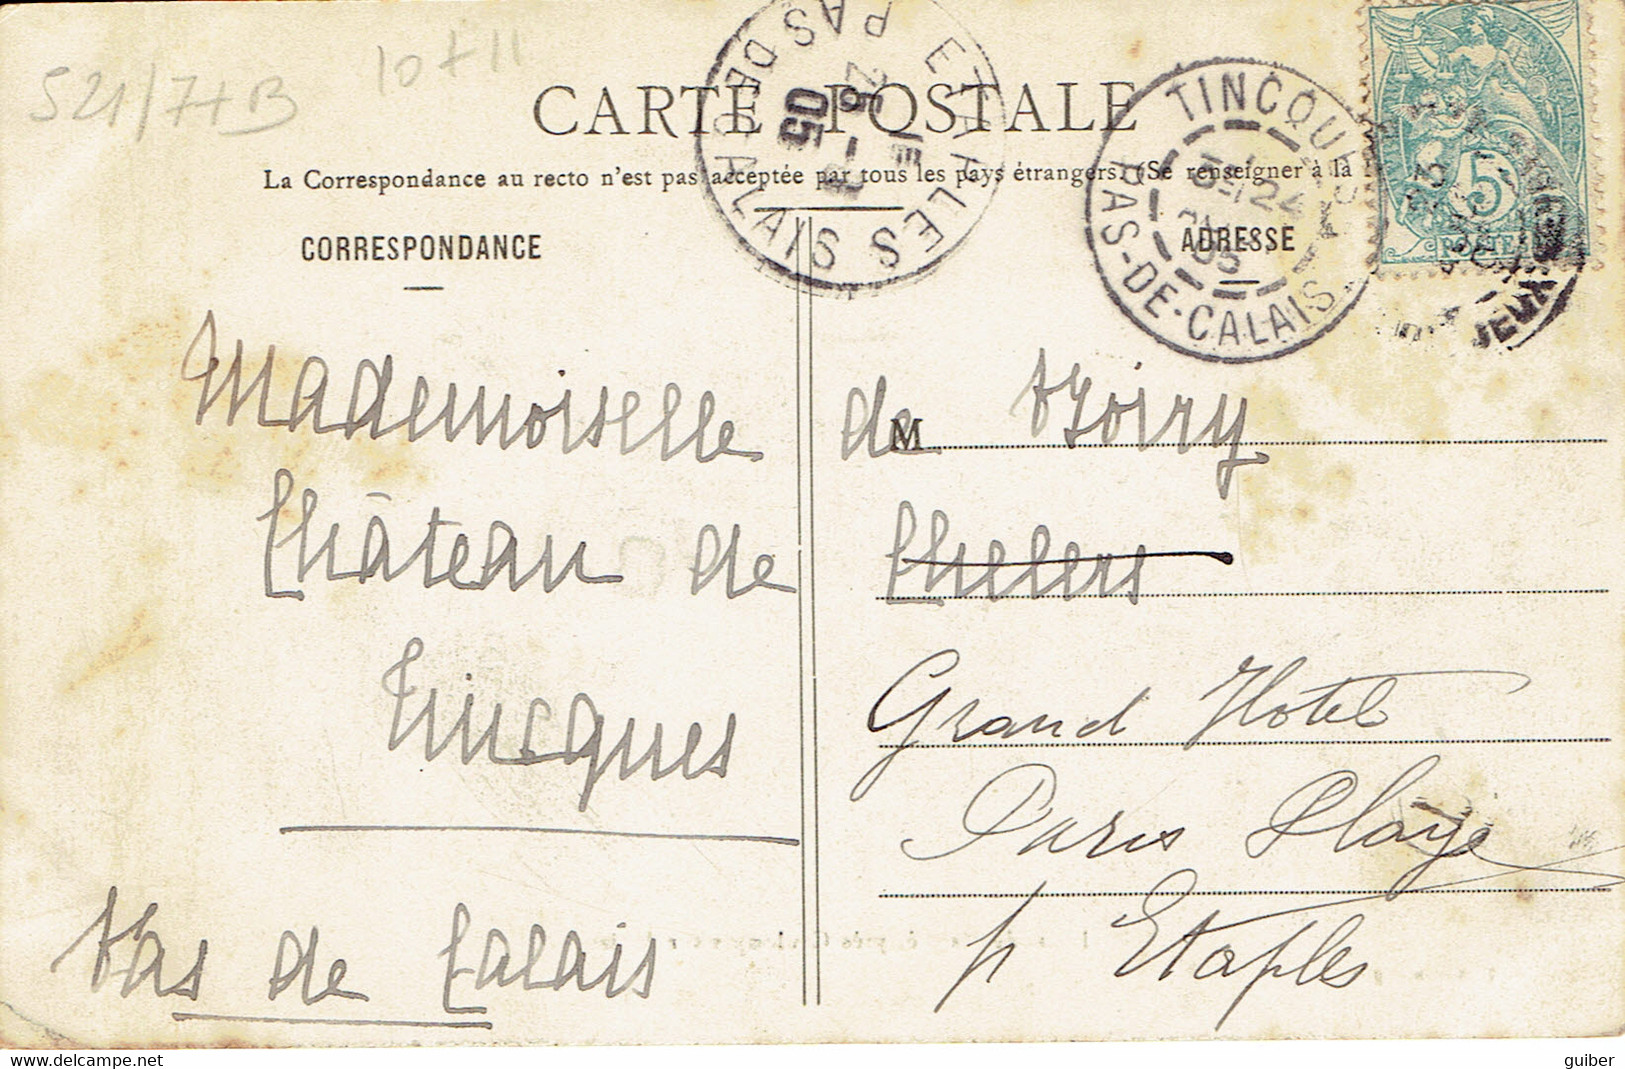 521/7+B
10+11
CARTE POSTALE
La Correspondance au recto n'est pas acceptée par tous les pays étrangers. (Se renseigner à la
CORRESPONDANCE
ADRESSE
ETAPLES
PAS DE CALAIS
25 -1
05
TINCQUES
PAS-DE-CALAIS
05
5
POSTE
Mademoiselle de
M
Château de Chelers
Tincques
Pas de Calais
Grand Hotel
Paris Plage
p Etaples
guiber